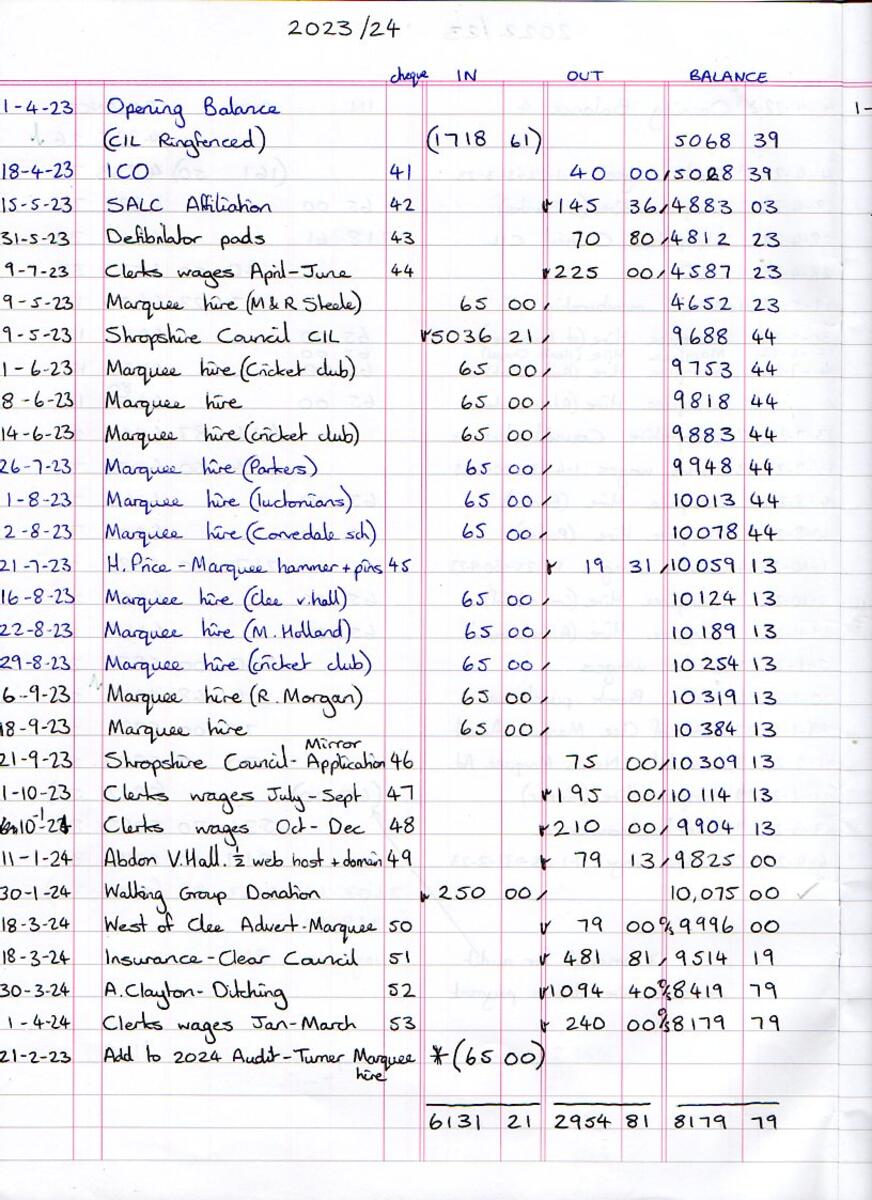 2023/24
cheque IN OUT BALANCE
1-4-23 Opening Balance
(CIL Ringfenced) (1718 61) 5068 39
18-4-23 ICO 41 40 00 5028 39
15-5-23 SALC Affiliation 42 145 36 4883 03
31-5-23 Defibrilator pads 43 70 80 4812 23
9-7-23 Clerks wages April-June 44 225 00 4587 23
9-5-23 Marquee hire (M & R Steele) 65 00 4652 23
9-5-23 Shropshire Council CIL 5036 21 9688 44
1-6-23 Marquee hire (Cricket club) 65 00 9753 44
8-6-23 Marquee hire 65 00 9818 44
14-6-23 Marquee hire (cricket club) 65 00 9883 44
26-7-23 Marquee hire (Parkers) 65 00 9948 44
1-8-23 Marquee hire (luctonians) 65 00 10013 44
2-8-23 Marquee hire (Corvedale sch) 65 00 10078 44
21-7-23 H. Price - Marquee hammer + pins 45 19 31 10059 13
16-8-23 Marquee hire (Clee v.hall) 65 00 10124 13
22-8-23 Marquee hire (M. Holland) 65 00 10189 13
29-8-23 Marquee hire (cricket club) 65 00 10254 13
6-9-23 Marquee hire (R. Morgan) 65 00 10319 13
18-9-23 Marquee hire 65 00 10384 13
21-9-23 Shropshire Council - Mirror Application 46 75 00 10309 13
1-10-23 Clerks wages July-Sept 47 195 00 10114 13
Clerks wages Oct-Dec 48 210 00 9904 13
11-1-24 Abdon V.Hall. ½ web host + domain 49 79 13 9825 00
30-1-24 Walking Group Donation 250 00 10,075 00
18-3-24 West of Clee Advert-Marquee 50 79 00 9996 00
18-3-24 Insurance-Clear Council 51 481 81 9514 19
30-3-24 A.Clayton-Ditching 52 1094 40 8419 79
1-4-24 Clerks wages Jan-March 53 240 00 8179 79
21-2-23 Add to 2024 Audit-Turner Marquee hire *(65 00)
6131 21 2954 81 8179 79